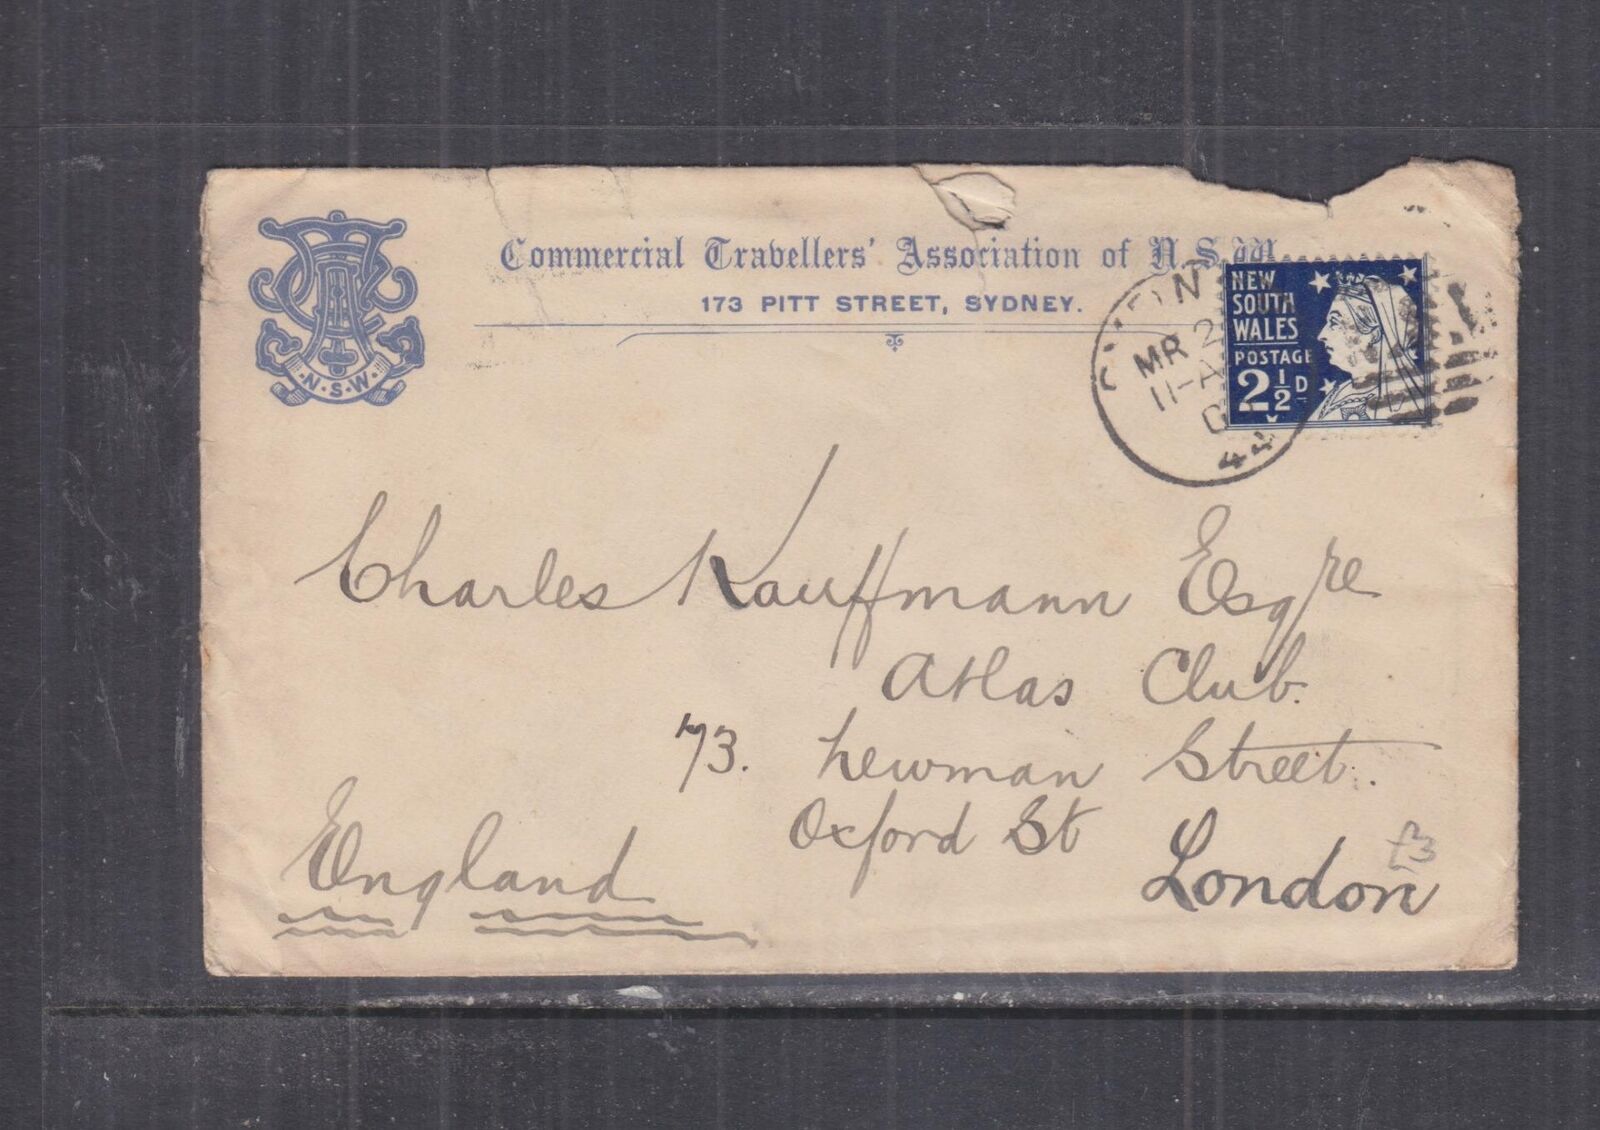 Commercial Travellers' Association of N.S.W.
173 PITT STREET, SYDNEY.
N.S.W.
MR 2
11-A
44
NEW
SOUTH
WALES
POSTAGE
2½D
Charles Kauffmann Esqre
Atlas Club.
73. Newman Street.
Oxford St
London
England
£3